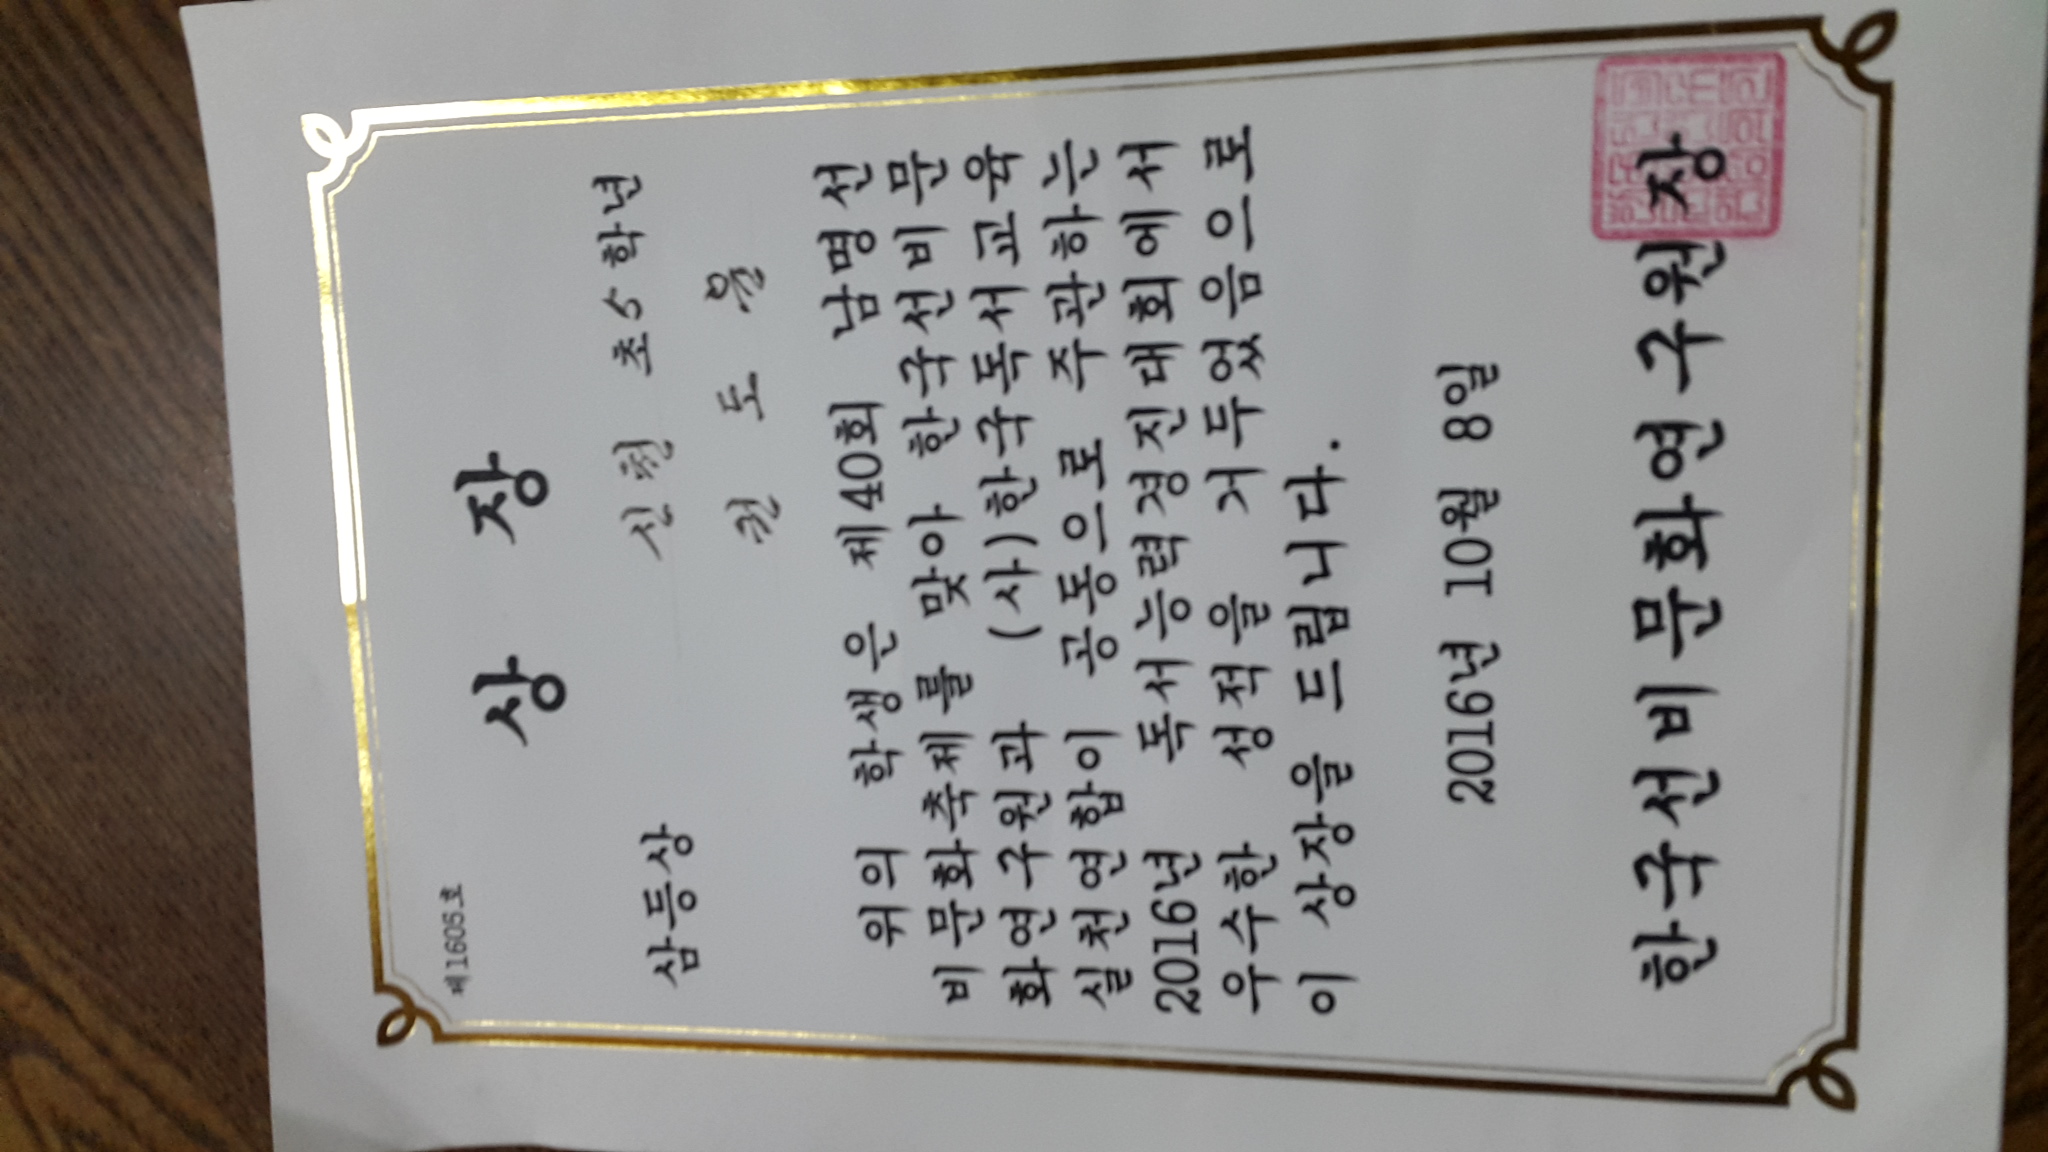 제1605호
상 장
삼등상 신천 초5학년
권 도 윤
위의 학생은 제40회 남명선
비문화축제를 맞아 한국선비문
화연구원과 (사)한국독서교육
실천연합이 공동으로 주관하는
2016년 독서능력경진대회에서
우수한 성적을 거두었음으로
이 상장을 드립니다.
2016년 10월 8일
한국선비문화연구원장